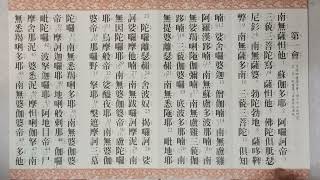 第一會
南無薩怛他 蘇伽多耶 阿囉訶帝
三藐三菩陀寫 薩怛他 佛陀俱胝瑟
尼釤 南無薩婆 勃陀勃地 薩跢鞞
弊 南無薩多南 三藐三菩陀 俱知
喃 娑舍囉婆迦 僧伽喃 南無盧雞
阿羅漢跢喃 南無蘇盧多波那喃 南
無娑羯唎陀伽彌喃 南無盧雞 三藐伽
跢喃 三藐伽波囉 底波多那喃 南
無提婆離瑟赧 南無悉陀耶 毗地
耶 陀囉離瑟赧 舍波奴 揭囉訶 娑
訶娑囉摩他喃 南無跋囉訶摩泥 南
無因陀囉耶 南無婆伽婆帝 嚧陀囉
耶 烏摩般帝 娑醯夜耶 南無婆伽
婆帝 那囉野拏耶 槃遮摩訶 三慕
陀囉 南無悉羯唎多耶 南無婆伽婆
帝 摩訶迦囉耶 地唎般剌那伽囉
毗陀囉波拏迦囉耶 阿地目帝 尸
摩舍那泥 婆悉泥 摩怛唎伽拏 南
無悉羯唎多耶 南無婆伽婆帝 多他